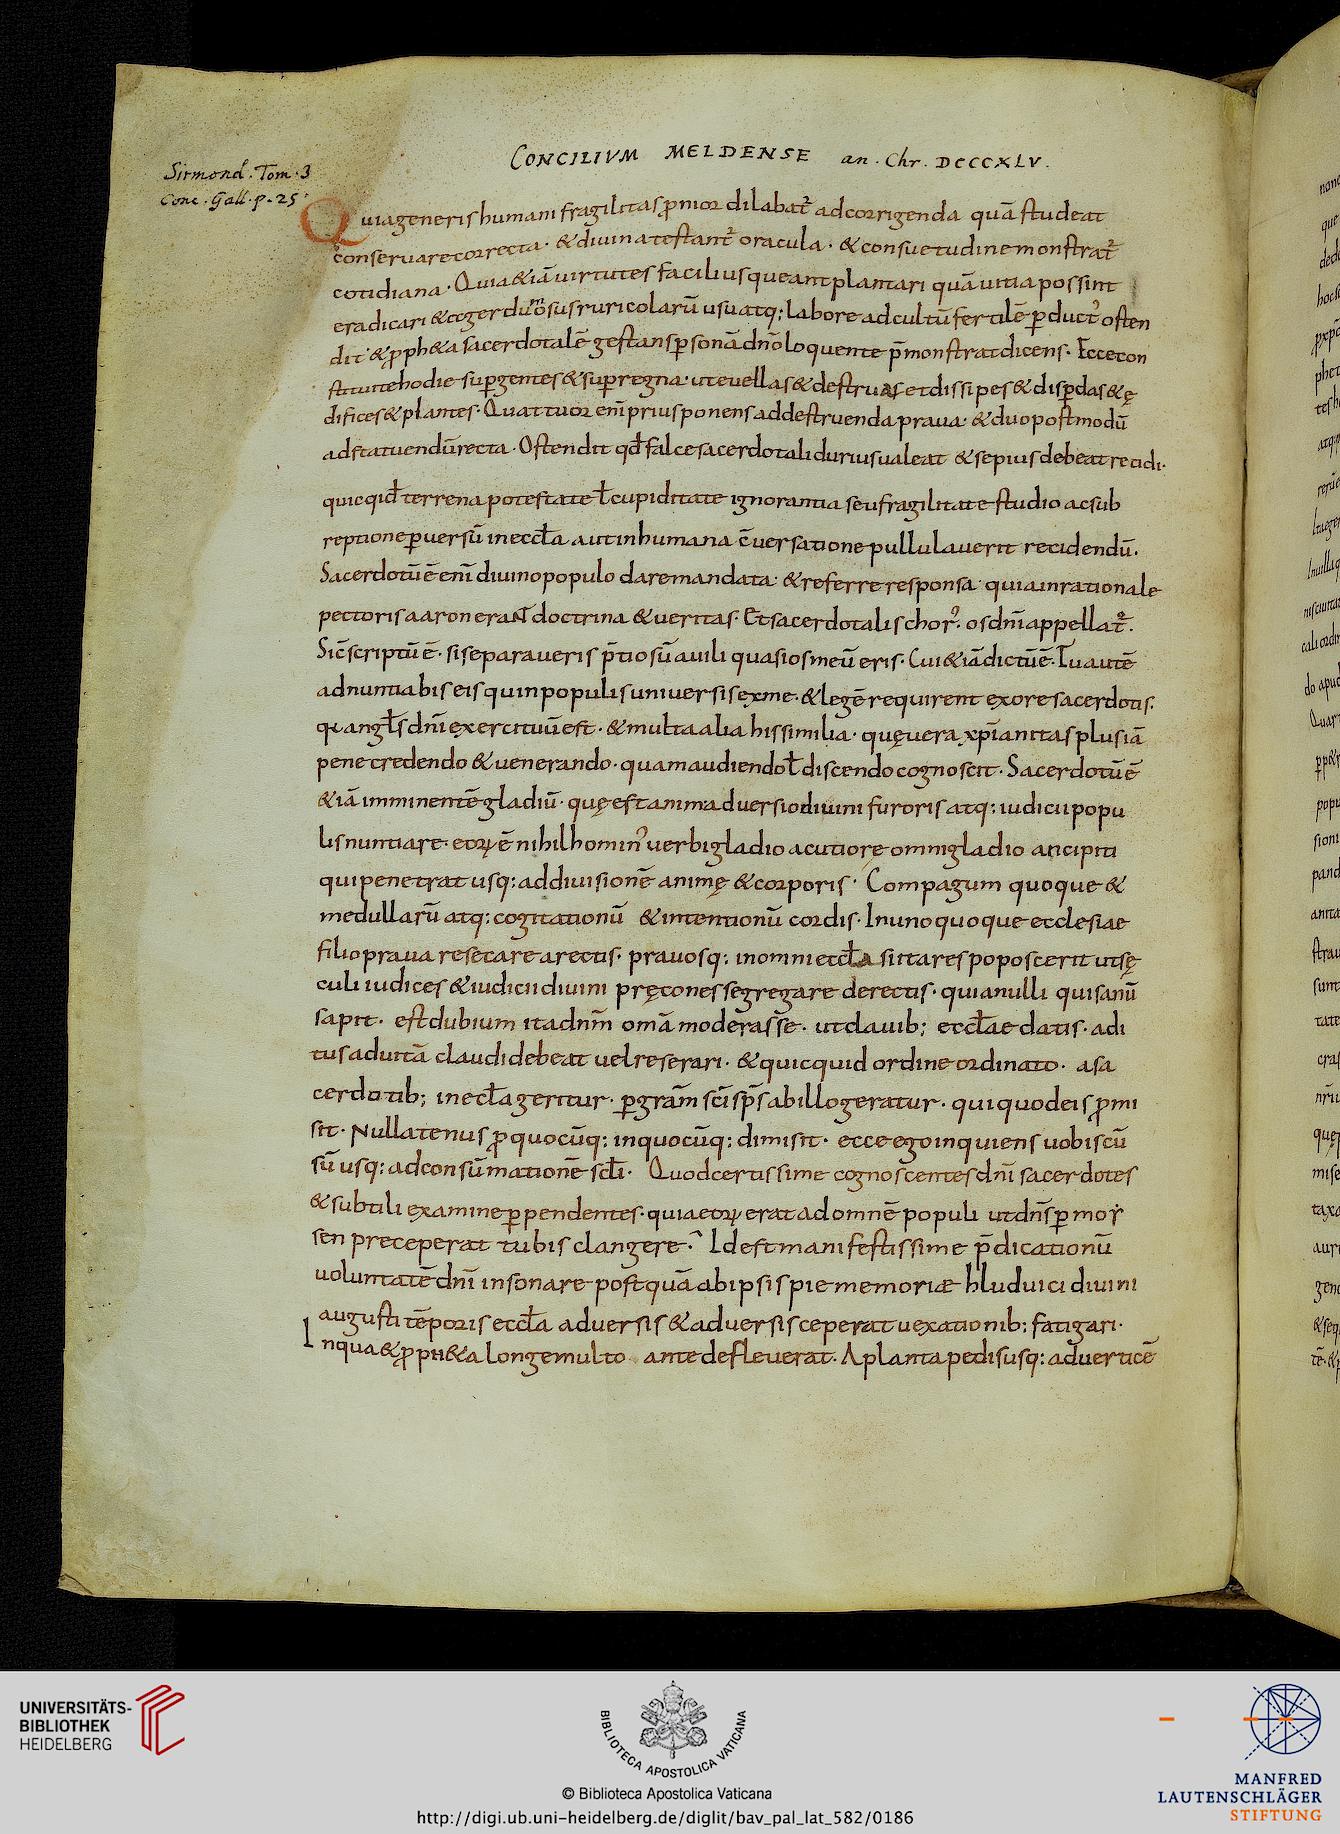 CONCILIVM MELDENSE an. Chr. DCCCXLV.
Sirmond. Tom. 3
Conc. Gall. p. 25
Quia generis humani fragilitas ꝓnior dilabat᷑ ad corrigenda quā studeat
conseruare correcta · & diuina testant᷑ oracula · & consuetudine monstrat᷑
cotidiana · Quia &iā uirtutes facilius queant plantari quā uitia possint
eradicari & ruricolarū usu atq; labore ad cultū fertilē ꝑduct᷒ osten
dit · & ꝓph&a sacerdotalē gestans ꝑsonā dn̄o loquente p̄monstrat dicens · Ecce con
stitui te hodie suꝑ gentes & suꝑ regna · ut euellas & destruas et dissipes & disꝑdas & ę
difices & plantes · Quattuor enī prius ponens ad destruenda praua · & duo postmodū
ad statuendū recta · Ostendit qđ falce sacerdotali durius ualeat & sepius debeat recidi ·
quicqid̄ terrena potestate ł cupiditate ignorantia seu fragilitate studio ac sub
reptione ꝑuersū in eccła aut in humana c̄uersatione pullulauerit recidendū.
Sacerdotū ē enī diuino populo dare mandata · & referre responsa · quia in rationale
pectoris aaron erant doctrina & ueritas · Et sacerdotalis chor᷒ · os dn̄i appellat᷑.
Sic̄ scriptū ē · si separaueris p̄tiosū a uili quasi os meū eris · Cui &iā dictū ē · Tu autē
adnuntiabis eis qui in populis uniuersis ex me · & legē requirent ex ore sacerdotis.
angłs dn̄i exercituū est · & multa alia his similia · quę uera xp̄ianitas plus iā
pene credendo & uenerando · quam audiendo ł discendo cognoscit · Sacerdotū ē
&iā imminentē gladiū · quę est animaduersio diuini furoris atq: iudicii popu
lis nuntiare · eoꝝ ē nihilhomin᷒ uerbi gladio acutiore omni gladio ancipiti
qui penetrat usq: ad diuisionē animę & corporis · Compagum quoque &
medullarū atq: cogitationū & intentionū cordis · In uno quoque ecclesiae
filio praua resecare a rectis · prauosq: in omni eccła si ita res poposcerit ut sę
culi iudices & iudicii diuini pręcones segregare de rectis · quia nulli qui sanū
sapit · est dubium ita dn̄m om̄a moderasse · ut clauib; eccłae datis · adi
tus ad uitā claudi debeat uel reserari · & quicquid ordine ordinato · a sa
cerdotib; in ecła geritur · ꝑ grām sc̄i sp̄s ab illo geratur · qui quod eis ꝓmi
sit · Nullatenus ꝓ quocūq: in quocūq: dimisit · ecce ego inquiens uobiscū
sū usq: ad consūmationē scłi · Quod certissime cognoscentes dn̄i sacerdotes
& subtili examine ꝑpendentes · quia eoꝝ erat ad omnē populi ut dn̄s ꝑ moy
sen preceperat tubis clangere · Id est manifestissime p̄dicationū
uoluntatē dn̄i insonare postquā ab ipsis pie memoriæ hluduici diuini
augusti tēporis eccła aduersis & aduersis ceperat uexationib: fatigari ·
In qua & ꝓph&a longe multo ante defleuerat · A planta pedis usq: ad uerticē
UNIVERSITÄTS-
BIBLIOTHEK
HEIDELBERG
BIBLIOTECA APOSTOLICA VATICANA
© Biblioteca Apostolica Vaticana
http://digi.ub.uni-heidelberg.de/diglit/bav_pal_lat_582/0186
MANFRED
LAUTENSCHLÄGER
STIFTUNG